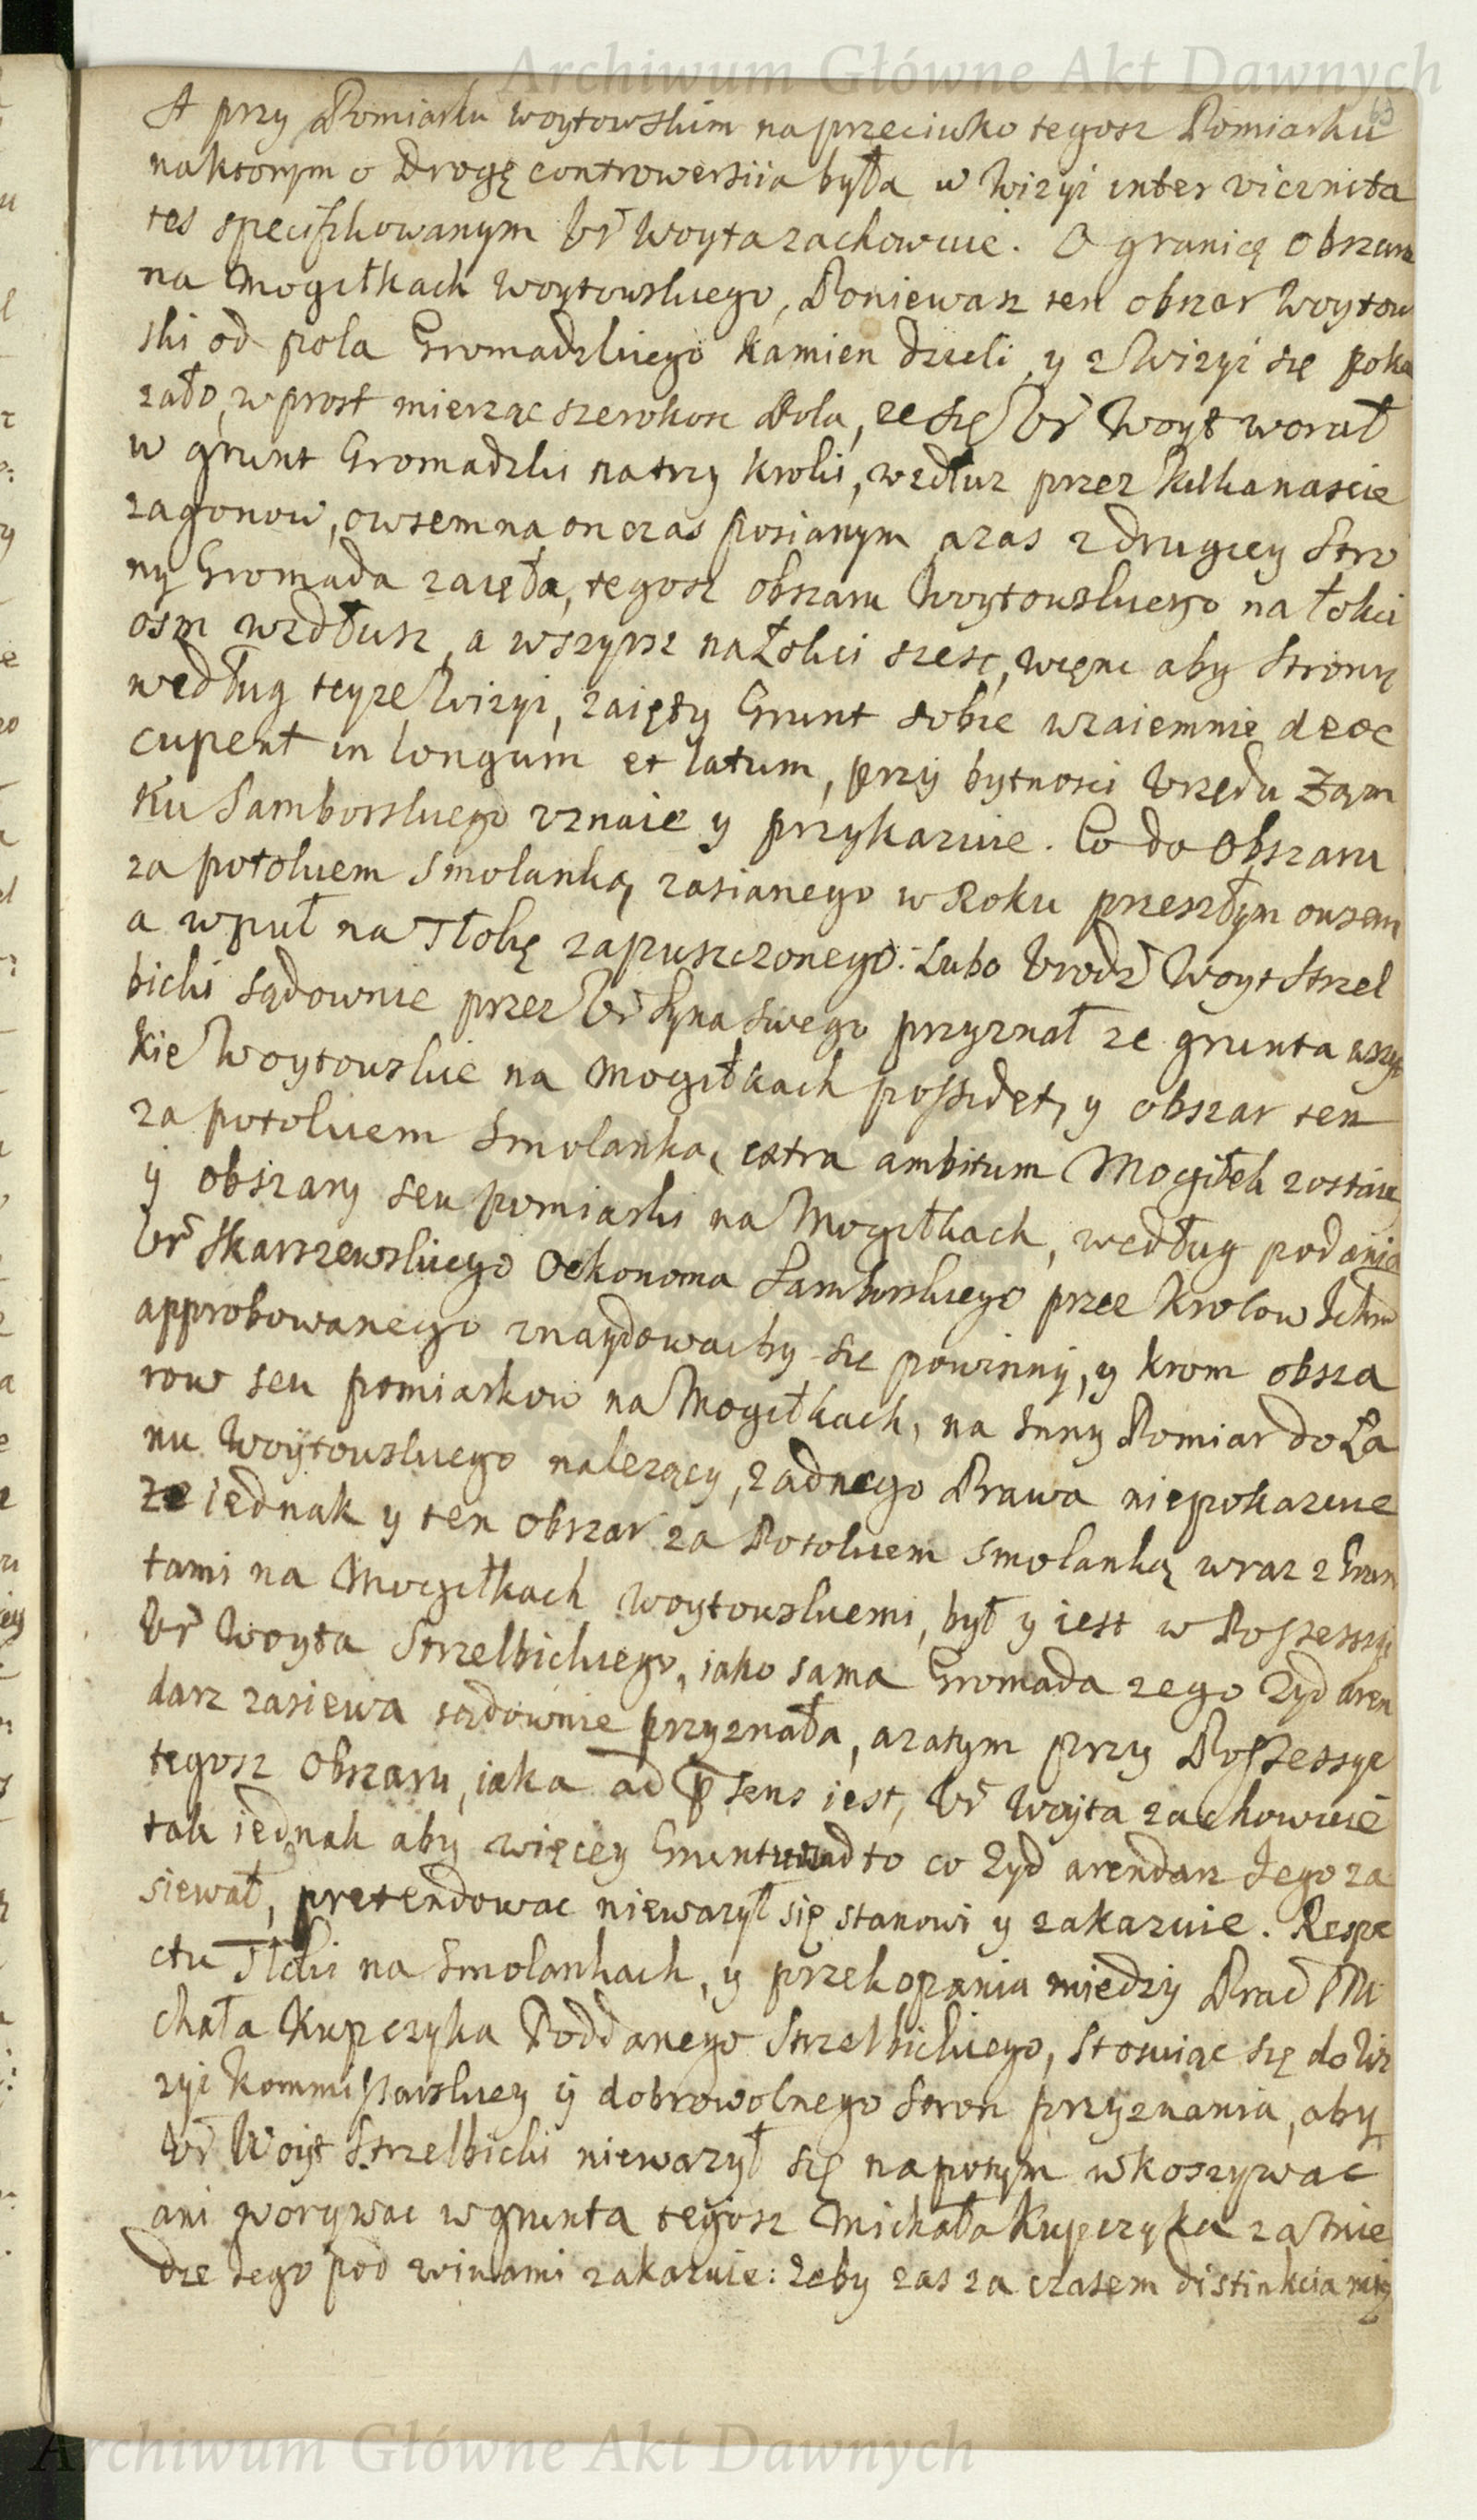 Archiwum Główne Akt Dawnych
63
A przy Pomiarku woytowskim naprzeciwko tegosz Pomiarku
naktorym o Drogę controwersiia była w Wizyi inter vicinita
tes specifikowanym Ur Woyta zachowuie. O granicę obszaru
na Mogiłkach Woytowskiego, Poniewasz ten obszar Woytow
ski od pola Gromadzkiego Kamien dzieli, y z Wizyi się poka
zało, w prost mierząc szerokosc Pola, ze się Ur Woyt worał
w grunt Gromadzki na trzy Kroki, wzdłuz przez kilkanascie
zagonow, owsem na on czas posianym azas z drugiey Stro
ny Gromada zaięła, tegosz obszaru Woytowskiego na łokci
osm wzdłusz, a wszyrsz na Łokci szesc, więnc aby Strony
według teyze Wizyi, zaięty Grunt sobie wzaiemnie deoc
cupent in longum et latum, przy bytnosci Urzędu Zam
ku Samborskiego uznaie y przykazuie. Co do Obszaru
za potokiem Smolanką, zasianego w Roku przeszłym owsem
a wpuł na Tłokę zapuszczonego. Lubo Urodz Woyt Strzel
bicki sądownie przez Ur Syna swego przyznał ze grunta wszyt
kie Woytowskie na Mogiłkach possidet, y obszar ten
za potokiem Smolanka, extra ambitum Mogiłek zostaie
y obszary seu pomiarki na Mogiłkach, według podania
Ur Skarszewskiego Oekonoma Samborskiego przez Krolow Ichm
approbowanego znaydowacby się powinny, y krom obsza
row seu pomiarkow na Mogiłkach, na inny Pomiar do Ła
nu Woytowskiego nalezący, zadnego Prawa niepokazuie
Ze iednak y ten Obszar za Potokiem Smolanką wraz z Grun
tami na Mogiłkach Woytowskiemi, był y iest w Possessyi
Ur Woyta Strzelbickiego, iako sama Gromada zego Zyd aren
darz zasiewa sądownie przyznała, azatym przy Possessyi
tegosz Obszaru, iaka ad p̄sens iest, Ur Woyta zachowuie
tak iednak aby więcey Gruntu nad to co Zyd arendarz Jego za
siewał, pretendowac niewazył się stanowi y zakazuie. Respe
ctu Tłoki na Smolankach, y przekopania miedzy Prac Mi
chała Kupczyka Poddanego Strzelbickiego, stosuiąc się do Wi
zyi Kommissarskiey y dobrowolnego Stron przyznania, aby
Ur Woyt Strzelbicki niewazył się napotym wkoszywac
ani worywac w grunta tegosz Michała Kupczyka za Mie
dze Jego pod winami zakazuie: Zeby zas za czasem distinkcia mię
Archiwum Główne Akt Dawnych